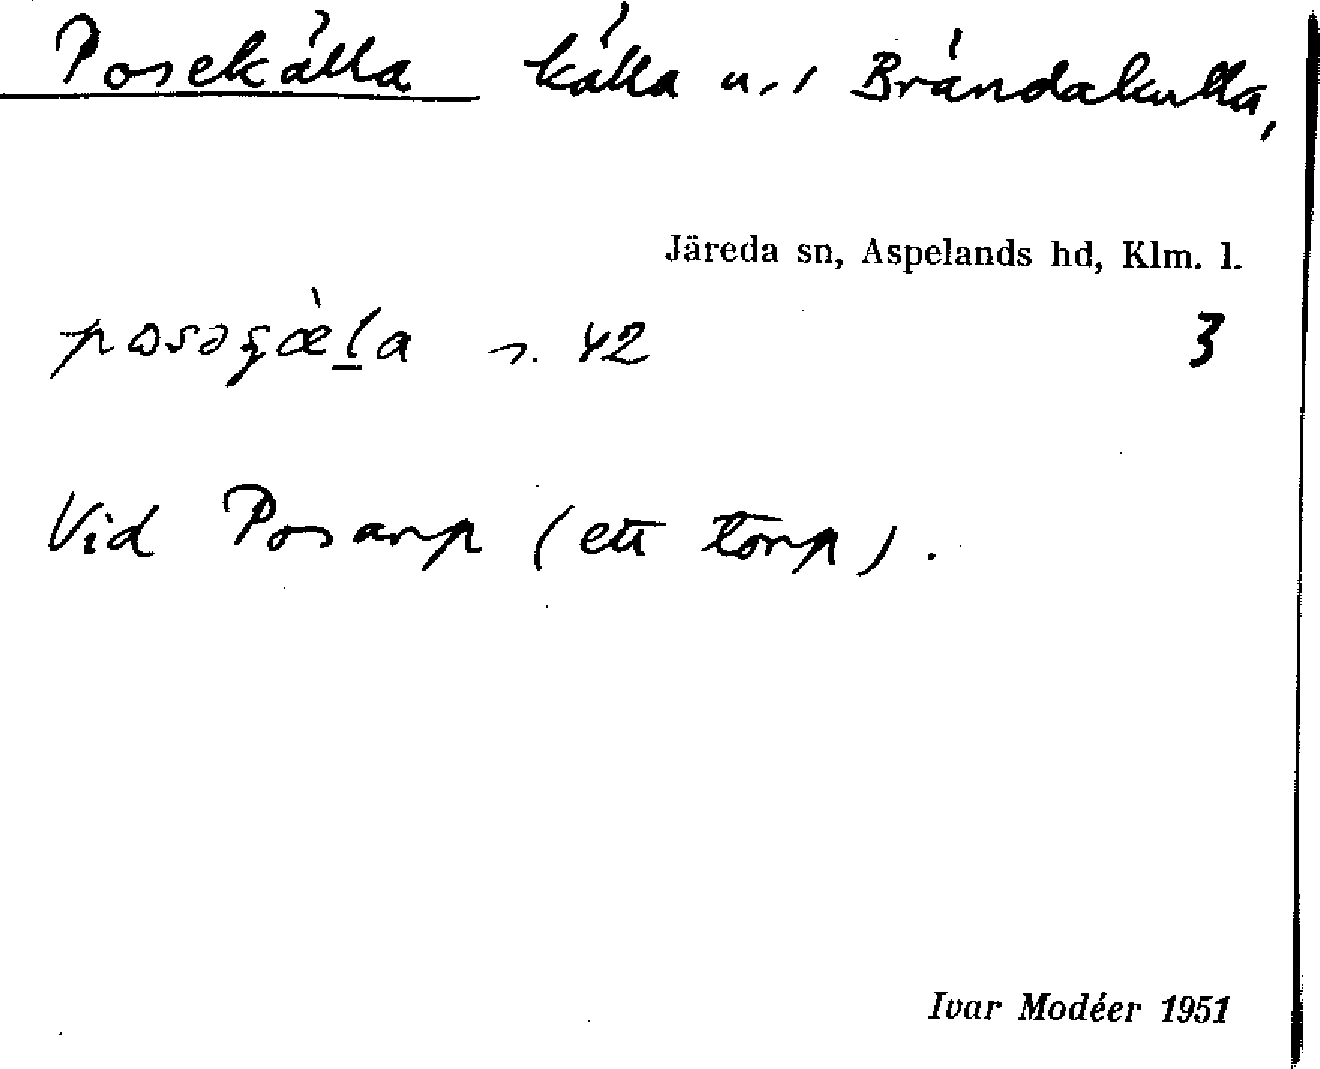 Posekälla källa u. i Brändakulla,
Järeda sn, Aspelands hd, Klm. l.
s. 42 3
Vid Posarp (ett torp).
Ivar Modéer 1951